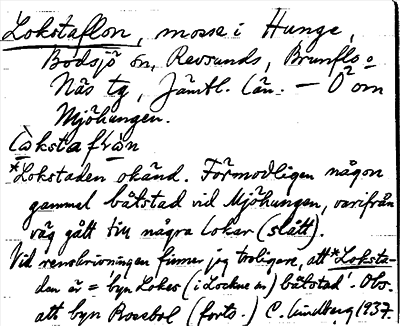 Lokstaflon, mosse i Hunge,
Bodsjö sn, Revsunds, Brunflo o
Näs tg, Jämtl. län. – O om
Mjöhungen.
Làkstafrån
*Lokstaden okänd. Förmodligen någon
gammal båtstad vid Mjöhungen, varifrån
väg gått till några lokar (slått).
Vid renskrivningen finner jag troligare, att *Loksta-
den är = byn Lokes (i Lockne sn) båtstad. Obs.
att byn Rossbol (forts.) C. Lindberg 1937.